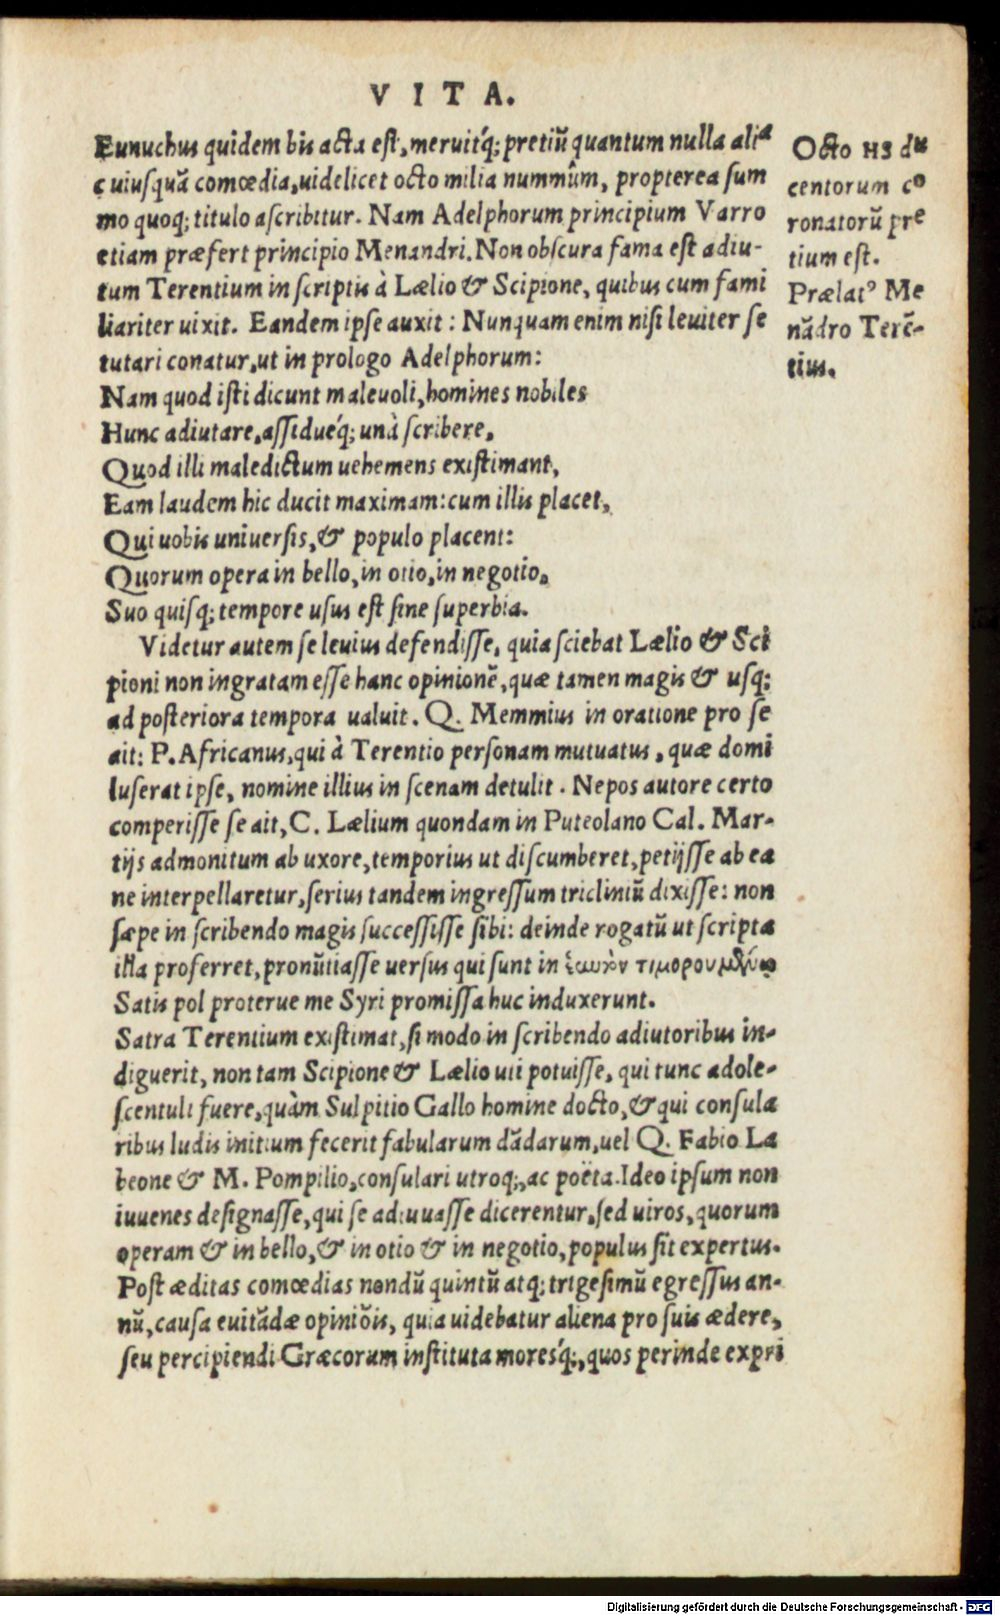 VITA.
Eunuchus quidem bis acta est, meruitq́; pretiũ quantum nulla alia
cuiusquã comœdia, uidelicet octo milia nummûm, propterea sum
mo quoq; titulo ascribitur. Nam Adelphorum principium Varro
etiam præfert principio Menandri. Non obscura fama est adiu-
tum Terentium in scriptis à Lælio & Scipione, quibus cum fami
liariter uixit. Eandem ipse auxit: Nunquam enim nisi leuiter se
tutari conatur, ut in prologo Adelphorum:
Nam quod isti dicunt maleuoli, homines nobiles
Hunc adiutare, assidueq́; unà scribere,
Quod illi maledictum uehemens existimant,
Eam laudem hic ducit maximam: cum illis placet,
Qui uobis uniuersis, & populo placent:
Quorum opera in bello, in otio, in negotio,
Suo quisq; tempore usus est sine superbia.
Videtur autem se leuius defendisse, quia sciebat Lælio & Sci
pioni non ingratam esse hanc opinionẽ, quæ tamen magis & usq;
ad posteriora tempora ualuit. Q. Memmius in oratione pro se
ait: P. Africanus, qui à Terentio personam mutuatus, quæ domi
luserat ipse, nomine illius in scenam detulit. Nepos autore certo
comperisse se ait, C. Lælium quondam in Puteolano Cal. Mar-
tijs admonitum ab uxore, temporius ut discumberet, petijsse ab ea
ne interpellaretur, serius tandem ingressum tricliniũ dixisse: non
sæpe in scribendo magis successisse sibi: deinde rogatũ ut scripta
illa proferret, pronũtiasse uersus qui sunt in ἑαυτὸν τιμορουμένῳ
Satis pol proterue me Syri promissa huc induxerunt.
Satra Terentium existimat, si modo in scribendo adiutoribus in-
diguerit, non tam Scipione & Lælio uti potuisse, qui tunc adole-
scentuli fuere, quàm Sulpitio Gallo homine docto, & qui consula
ribus ludis initium fecerit fabularum dãdarum, uel Q. Fabio La
beone & M. Pompilio, consulari utroq;, ac poëta. Ideo ipsum non
iuuenes designasse, qui se adiuuasse dicerentur, sed uiros, quorum
operam & in bello, & in otio & in negotio, populus sit expertus.
Post æditas comœdias nondũ quintũ atq; trigesimũ egressus an-
nũ, causa euitãdæ opiniõis, quia uidebatur aliena pro suis ædere,
seu percipiendi Græcorum instituta moresq́;, quos perinde expri
Octo HS du
centorum co
ronatorũ pre
tium est.
Prælatꝰ Me
nãdro Terẽ-
tius.
Digitalisierung gefördert durch die Deutsche Forschungsgemeinschaft - DFG